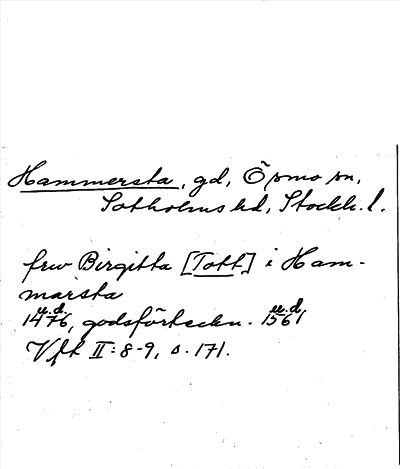 Hammersta, gd, Ösmo sn,
Sotholms hd, Stockh. l.
fru Birgitta [Tott] i Ham-
marsta
u.d. u.d.
1476, godsförteckn. 1561
Vfk II: 8-9, s. 171.